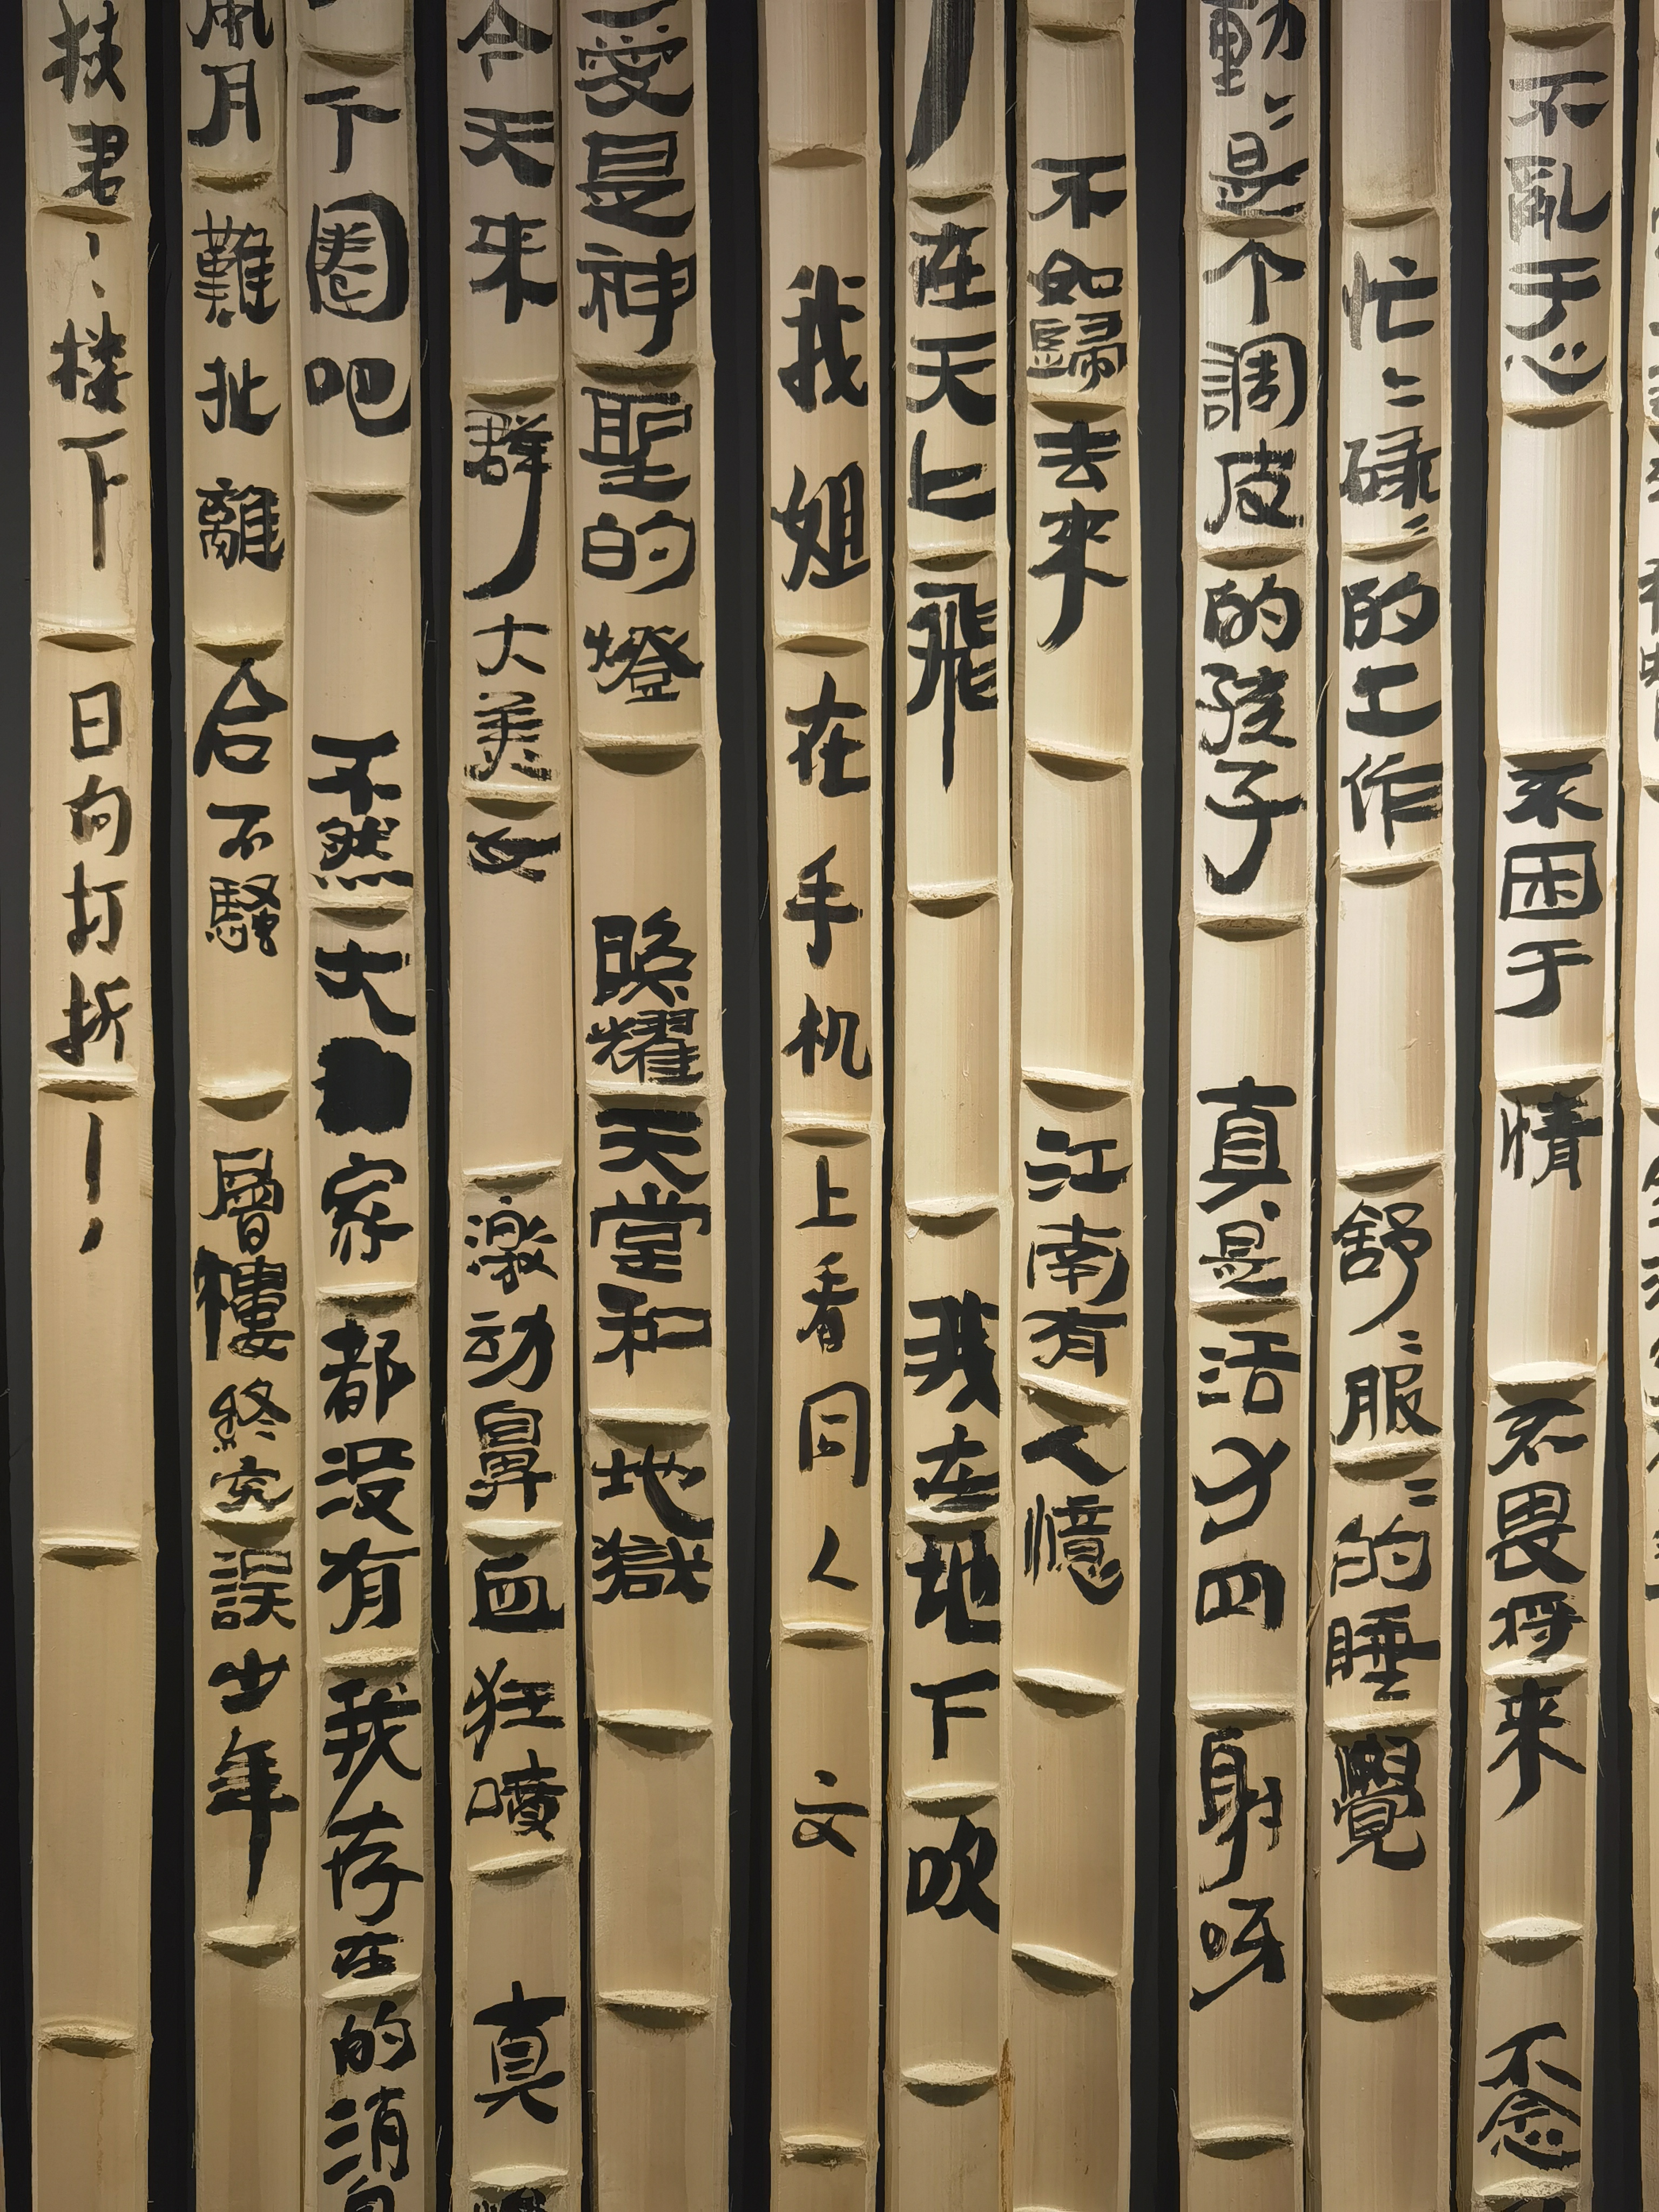 不亂于心 不困于情 不畏将来 不念
忙〻碌〻的工作 舒〻服〻的睡覺
動〻是个調皮的孩子 真是活力四射呀
不如歸去来 江南有人憶
在天上飛 我在地下吹
我姐在手机上看同人文
愛是神聖的燈 照耀天堂和地獄
今天来群大美女 激动鼻血狂噴 真
下圈吧 不然大家都没有我存在的消
風月難扯離合不騷 層樓終究誤少年
扶君 楼下 日向打折